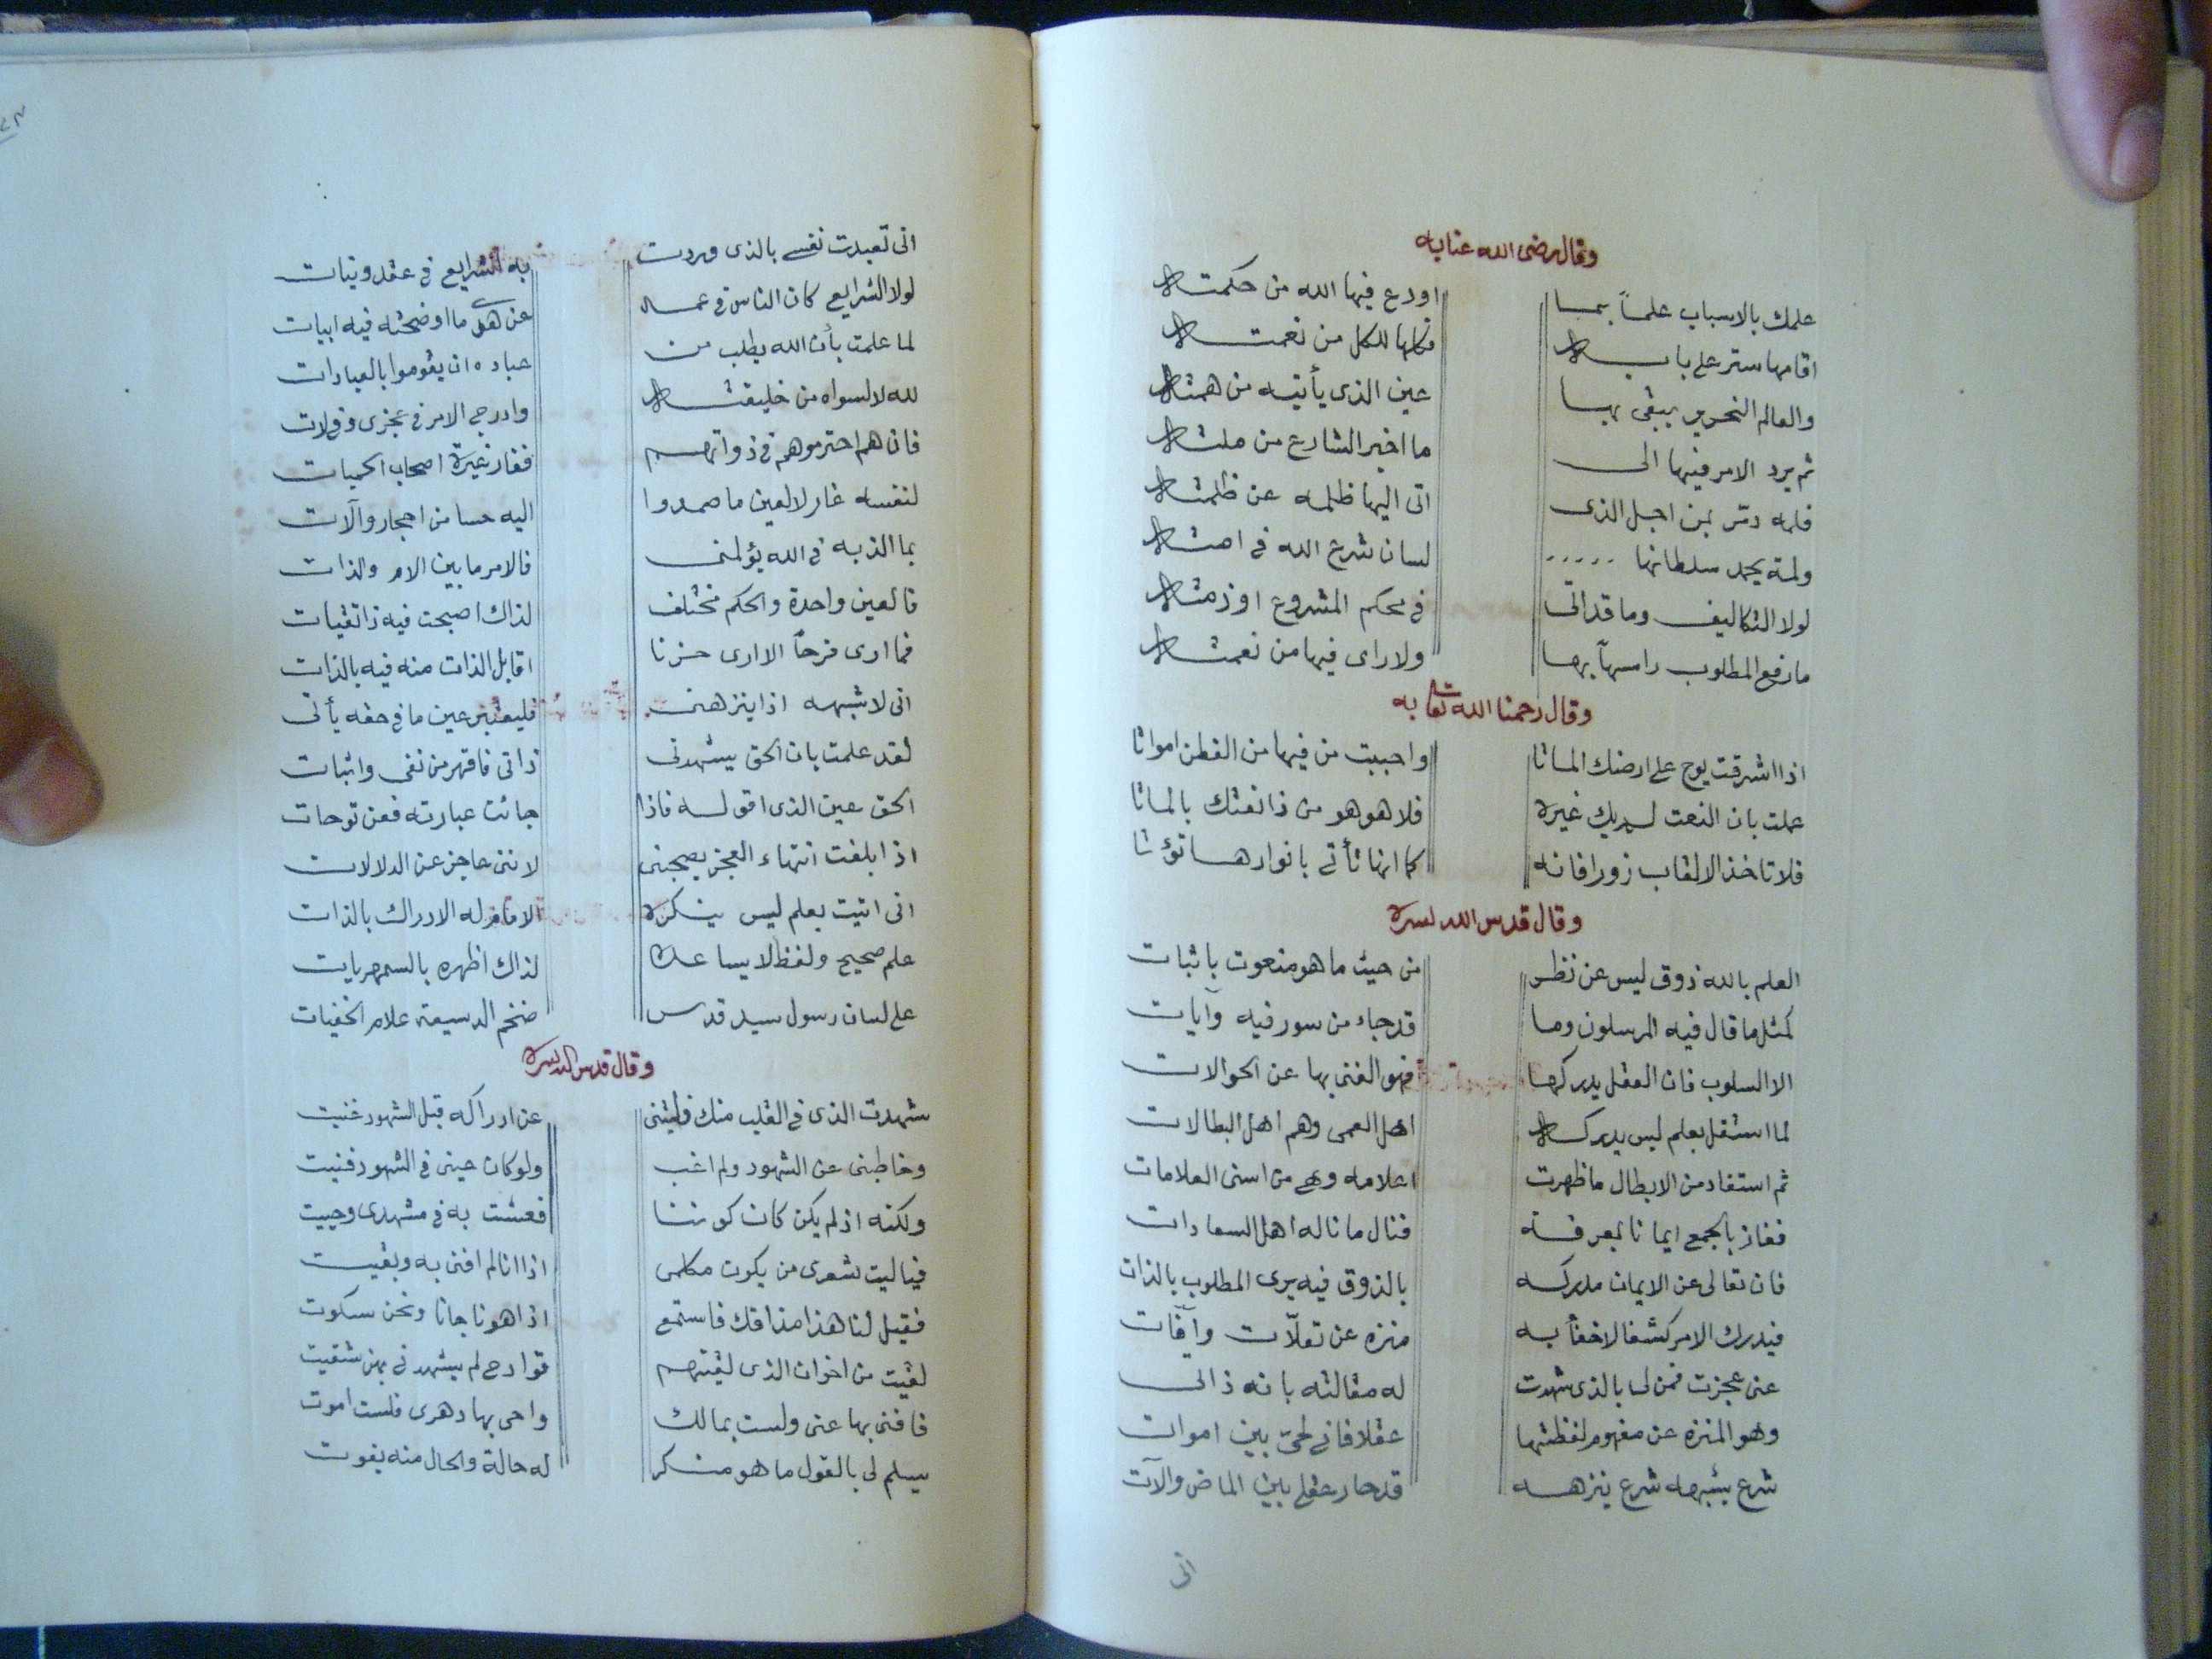 وقال رضى الله عنا به
علمك بالاسباب علماً بمسا اودع فيها الله من حكمته
اقامها ستر على بابه فكلها للكل من نعمته
والعالم النحرير يبقى بهسا عين الذى يأتيه من همته
ثم يرد الامر فيها الى ما اخبر الشارع من ملته
اجل الذى اتى اليها ظلمه عن ظلمته
يجهد سلطانها ..... لسان شرع الله فى امته
لولا التكاليف وما قد اتى فى محكم المشروع او ذمته
ما رفع المطلوب راسهاً بهسا ولا راى فيها من نعمته
وقال رحمنا الله تعا به
اذا اشرقت يوح على ارضك الماتا واحييت من فيها من الفطن امواتا
علمت بان النعت لديك غيره فلا هو هو من ذا نعتك بالماتا
فلا تاخذ الالقاب زورا فانه كما انها تأتى بانوارهسا تؤتا
وقال قدس الله سره
العلم بالله ذوق ليس عن نظر من حيث ما هو منعوت باثبات
كمثل ما قال فيه المرسلون وما قد جاء من سور فيه وآيات
الا السلوب فان العقل يدركها فهو الغنى بها عن الحوالات
لما استقل بعلم ليس يدركه اهل العمى وهم اهل البطالات
ثم استفاد من الابطال ما ظهرت اعلامه وهى من اسنى العلامات
ففاز بالجمع ايمانا بمعرفة فنال ما ناله اهل السعادات
فان تعالى عن الايمان مدركه بالذوق فيه يرى المطلوب بالذات
فيدرك الامر كشفا لا خفأ به منزه عن تعلّات وآفات
عنى عجزت فمن لى بالذى شهدت له مقالته بانه ذاتى
وهو المنزه عن مفهوم لفظتها عقلا فانى لحىّ بين اموات
شرع يشبهه شرع ينزهه قد حار عقلى بين الماض والآت
انى
انى تعبدت نفسى بالذى وردت به الشرايع فى عقد ونيات
لولا الشرايع كان الناس فى عمه عن هوى ما اوضحته فيه ابيات
لما علمت بأن الله يطلب من عباده ان يقوموا بالعبادات
لله لا لسواه من خليقته وادرجى الامر فى عجزى
فان هم احترموهم فى ذواتهم فغار غيرة اصحاب الحميات
لنفسه غار لا لعين ما صمدوا اليه حسا من احجار وآلات
بما الذ به فى الله يؤلمنى فالامر ما بين الام والذات
فالعين واحدة والحكم مختلف لذاك اصبحت فيه ذا تقيات
فما ارى فرحاً الا ارى حزنا اقابل الذات منه فيه بالذات
انى لاشبهه اذا ينزهنى فليعتبر عين ما فى حقه يأتى
لقد علمت بان الحق يشهدنى ذاتى فاقهر من نفى واثبات
الحق عين الذى اقوله فاذا جائت عبارته فعن توحات
اذا بلغت انتهاء العجز يصحبنى لاننى عاجز عن الدلالات
انى اتيت بعلم ليس ينكره الا من له الادراك بالذات
علم صحيح ولفظ لا يساعده لذاك اظهره بالسمهريات
على لسان رسول سيد قدس ضخم الدسيعة علام الخفيات
وقال قدس الله سره
شهدت الذى فى القلب منك فليتنى عن ادراكه قبل الشهود غنيت
وخاطبنى عن الشهود ولم اغب ولو كان عينى فى الشهود فنيت
ولكنه اذ لم يكن كان كوننا فعشت به فى مشهدى وحييت
فياليت شعرى من يكون مكلمى اذا انا لم افنى به وبقيت
فقيل لنا هذا مذاقك فاستمع اذا هو ناجانا ونحن سكوت
لقيت من اخوان الذى لقيتهم قوادح لم يشهدنى بهن شقيت
فافنى بها عنى ولست بمالك واحى بها دهرى فلست اموت
يسلم لى بالقول ما هو منكر له حالة والحال منه يفوت